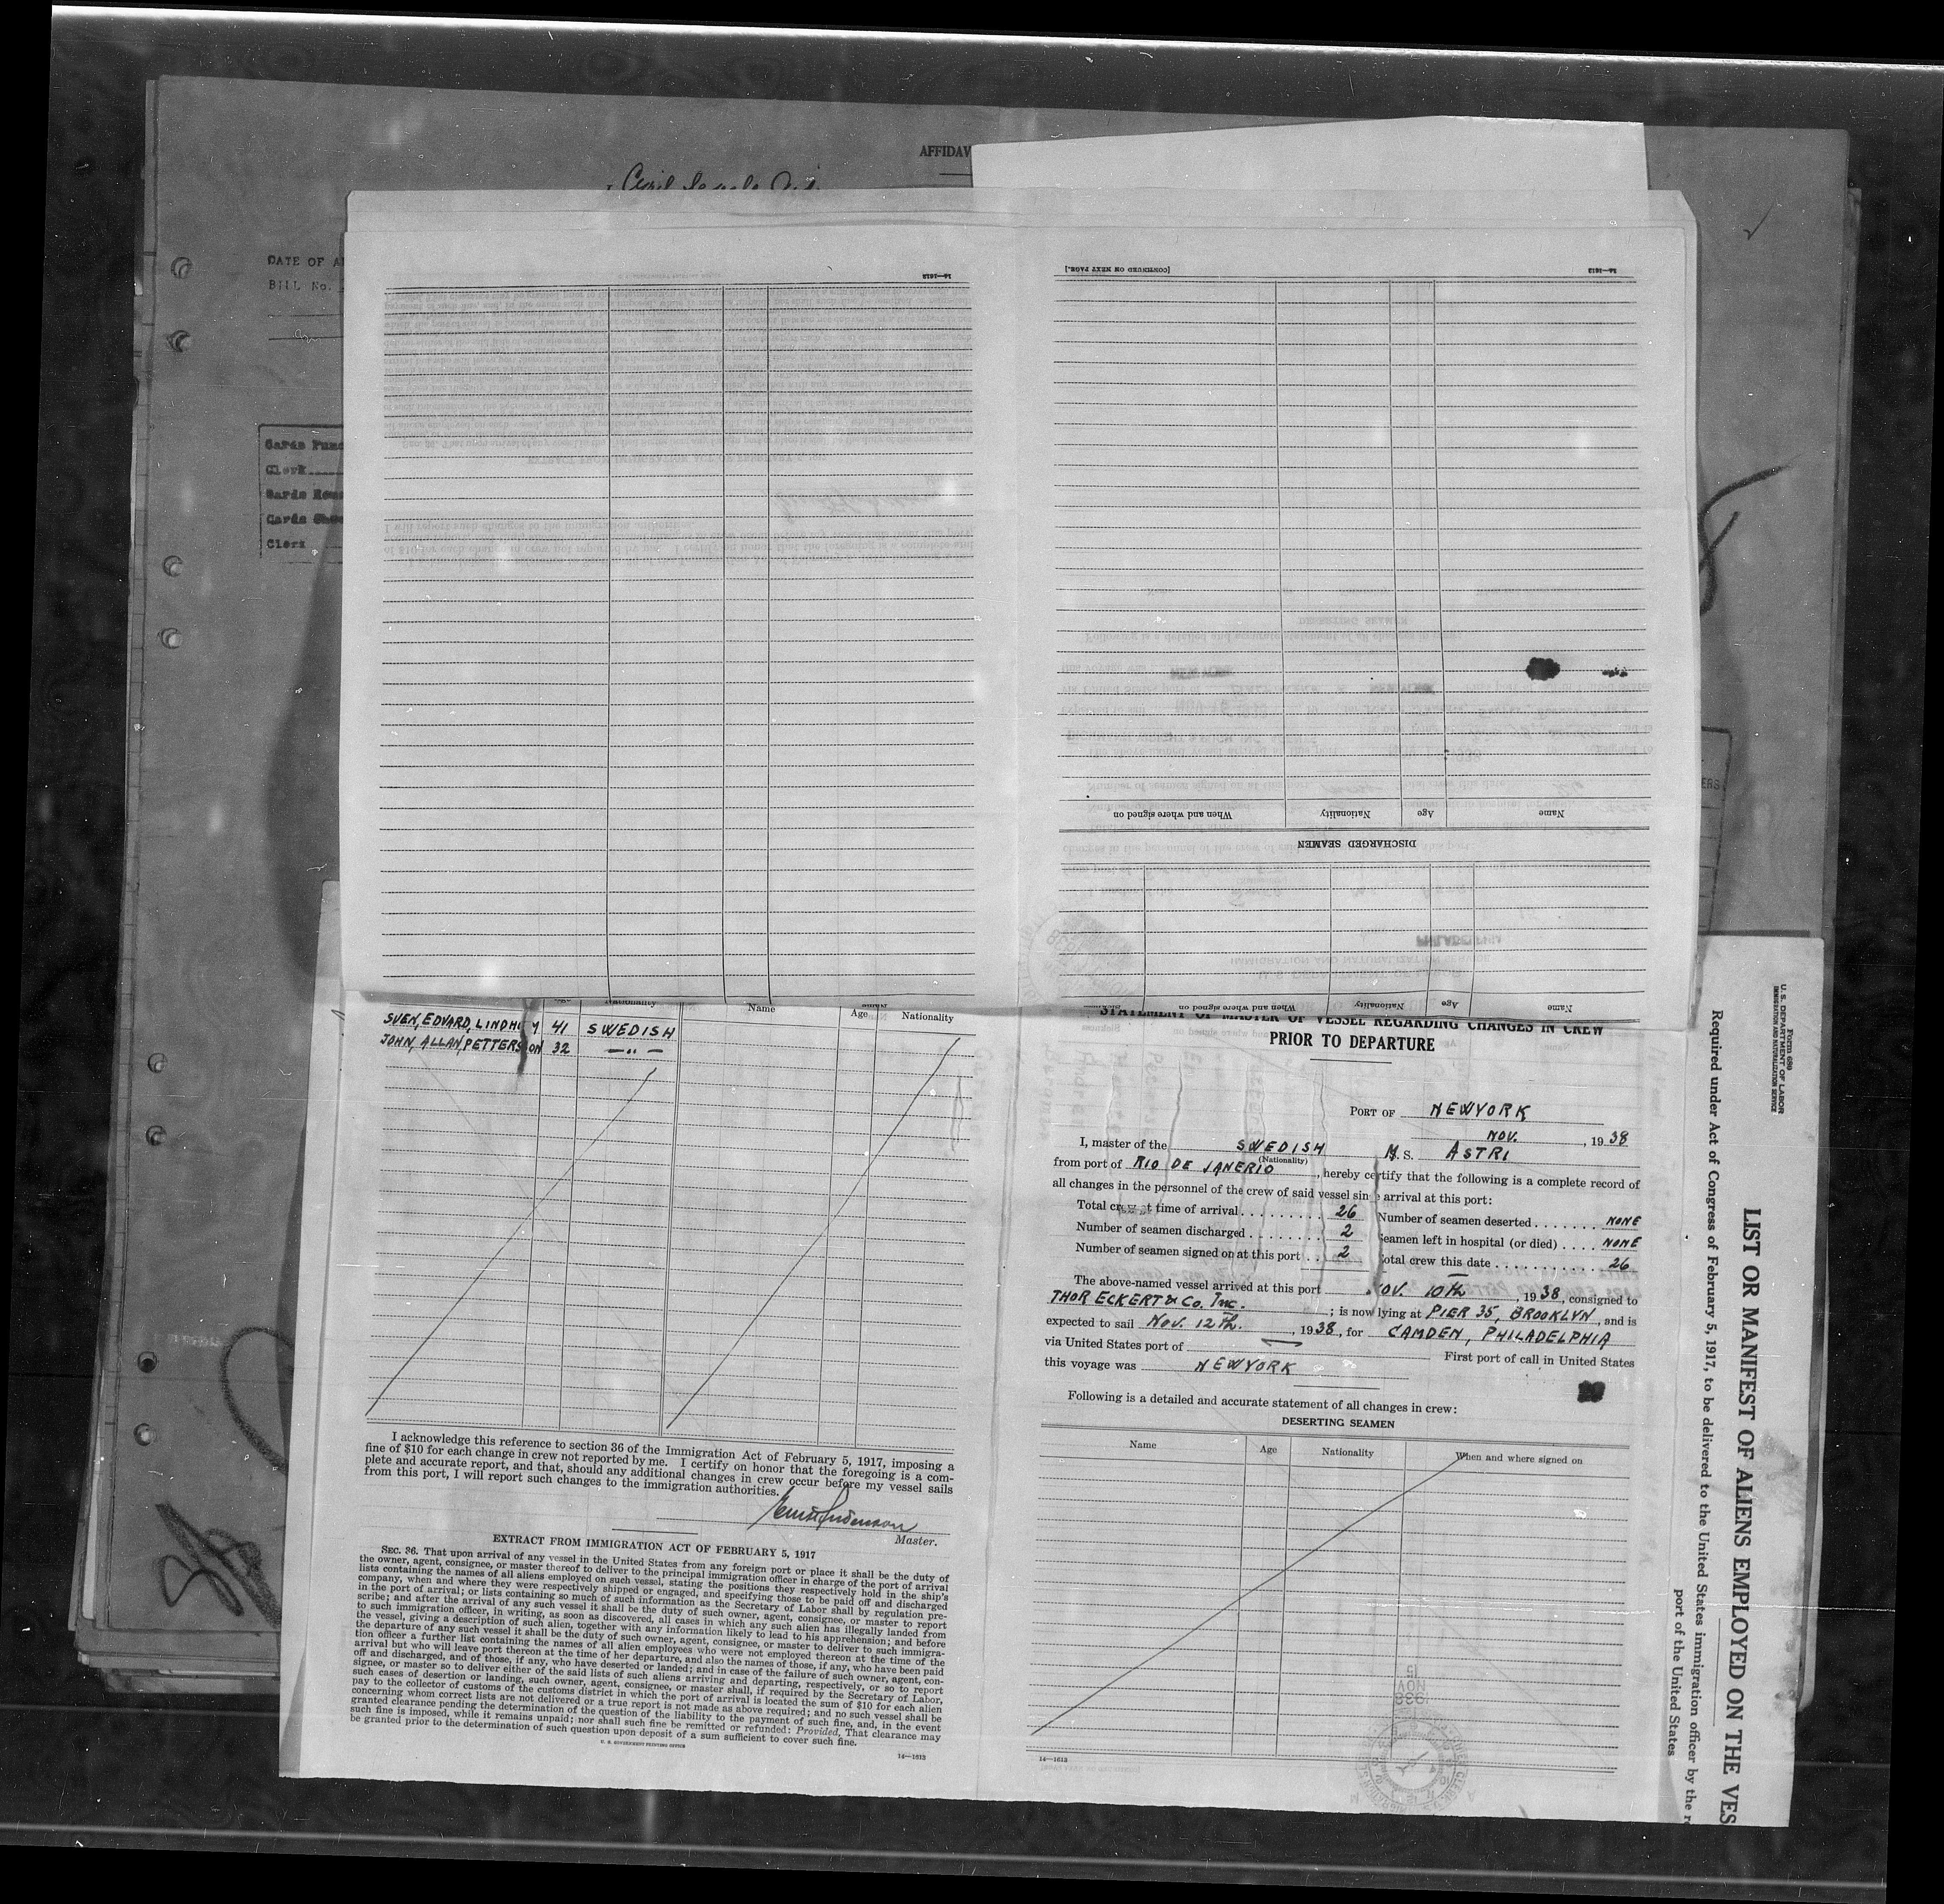 AFFIDAV
DATE OF A
BILL No.
Cards Punc
Clerk
Cards
Cards
Clerk
ERS
14—1613
[CONTINUED ON NEXT PAGE.]
14—1613
When and where signed on Nationality Age Name
DISCHARGED SEAMEN
When and where signed on Nationality Age Name
Nationality Name Age Nationality
SVEN, EDVARD, 41 SWEDISH
JOHN, ALLAN, PETTERSON 32 — „ —
I acknowledge this reference to section 36 of the Immigration Act of February 5, 1917, imposing a
fine of $10 for each change in crew not reported by me. I certify on honor that the foregoing is a com-
plete and accurate report, and that, should any additional changes in crew occur before my vessel sails
from this port, I will report such changes to the immigration authorities.
Master.
EXTRACT FROM IMMIGRATION ACT OF FEBRUARY 5, 1917
SEC. 36. That upon arrival of any vessel in the United States from any foreign port or place it shall be the duty of
the owner, agent, consignee, or master thereof to deliver to the principal immigration officer in charge of the port of arrival
lists containing the names of all aliens employed on such vessel, stating the positions they respectively hold in the ship's
company, when and where they were respectively shipped or engaged, and specifying those to be paid off and discharged
in the port of arrival; or lists containing so much of such information as the Secretary of Labor shall by regulation pre-
scribe; and after the arrival of any such vessel it shall be the duty of such owner, agent, consignee, or master to report
to such immigration officer, in writing, as soon as discovered, all cases in which any such alien has illegally landed from
the vessel, giving a description of such alien, together with any information likely to lead to his apprehension; and before
the departure of any such vessel it shall be the duty of such owner, agent, consignee, or master to deliver to such immigra-
tion officer a further list containing the names of all alien employees who were not employed thereon at the time of the
arrival but who will leave port thereon at the time of her departure, and also the names of those, if any, who have been paid
off and discharged, and of those, if any, who have deserted or landed; and in case of the failure of such owner, agent, con-
signee, or master so to deliver either of the said lists of such aliens arriving and departing, respectively, or so to report
such cases of desertion or landing, such owner, agent, consignee, or master shall, if required by the Secretary of Labor,
pay to the collector of customs of the customs district in which the port of arrival is located the sum of $10 for each alien
concerning whom correct lists are not delivered or a true report is not made as above required; and no such vessel shall be
granted clearance pending the determination of the question of the liability to the payment of such fine, and, in the event
such fine is imposed, while it remains unpaid; nor shall such fine be remitted or refunded: Provided, That clearance may
be granted prior to the determination of such question upon deposit of a sum sufficient to cover such fine.
U. S. GOVERNMENT PRINTING OFFICE 14—1613
STATEMENT OF MASTER OF VESSEL REGARDING CHANGES IN CREW
PRIOR TO DEPARTURE
PORT OF NEWYORK
NOV. , 1938
I, master of the SWEDISH M. S. ASTRI
(Nationality)
from port of RIO DE JANERIO , hereby certify that the following is a complete record of
all changes in the personnel of the crew of said vessel since arrival at this port:
Total crew at time of arrival 26 Number of seamen deserted NONE
Number of seamen discharged 2 Seamen left in hospital (or died) NONE
Number of seamen signed on at this port 2 Total crew this date 26
The above-named vessel arrived at this port NOV. 10th , 1938, consigned to
THOR ECKERT & Co. Inc. ; is now lying at PIER 35, BROOKLYN, and is
expected to sail NOV. 12th. , 1938, for CAMDEN, PHILADELPHIA
via United States port of — First port of call in United States
this voyage was NEWYORK
Following is a detailed and accurate statement of all changes in crew:
DESERTING SEAMEN
Name Age Nationality When and where signed on
1938
NOV
15
14—1613
Form 689
U. S. DEPARTMENT OF LABOR
IMMIGRATION AND NATURALIZATION SERVICE
LIST OR MANIFEST OF ALIENS EMPLOYED ON THE VES
Required under Act of Congress of February 5, 1917, to be delivered to the United States immigration officer by the r
port of the United States